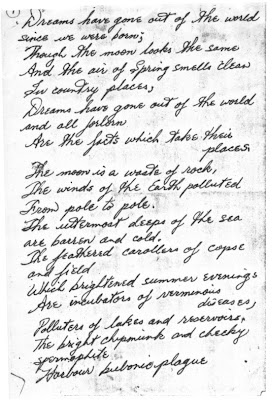 1
Dreams have gone out of the world
since we were born;
Though the moon looks the same
And the air of Spring smells clean
In country places;
Dreams have gone out of the world
and all forlorn
Are the facts which take their
places.
The moon is a waste of rock,
The winds of the Earth polluted
From pole to pole.
The uttermost deeps of the sea
are barren and cold,
The feathered carollers of copse
and field
Which brightened summer evenings
Are incubators of verminous
diseases,
Polluters of lakes and reservoirs.
The bright chipmunk and cheeky
spermophile
Harbour bubonic plague